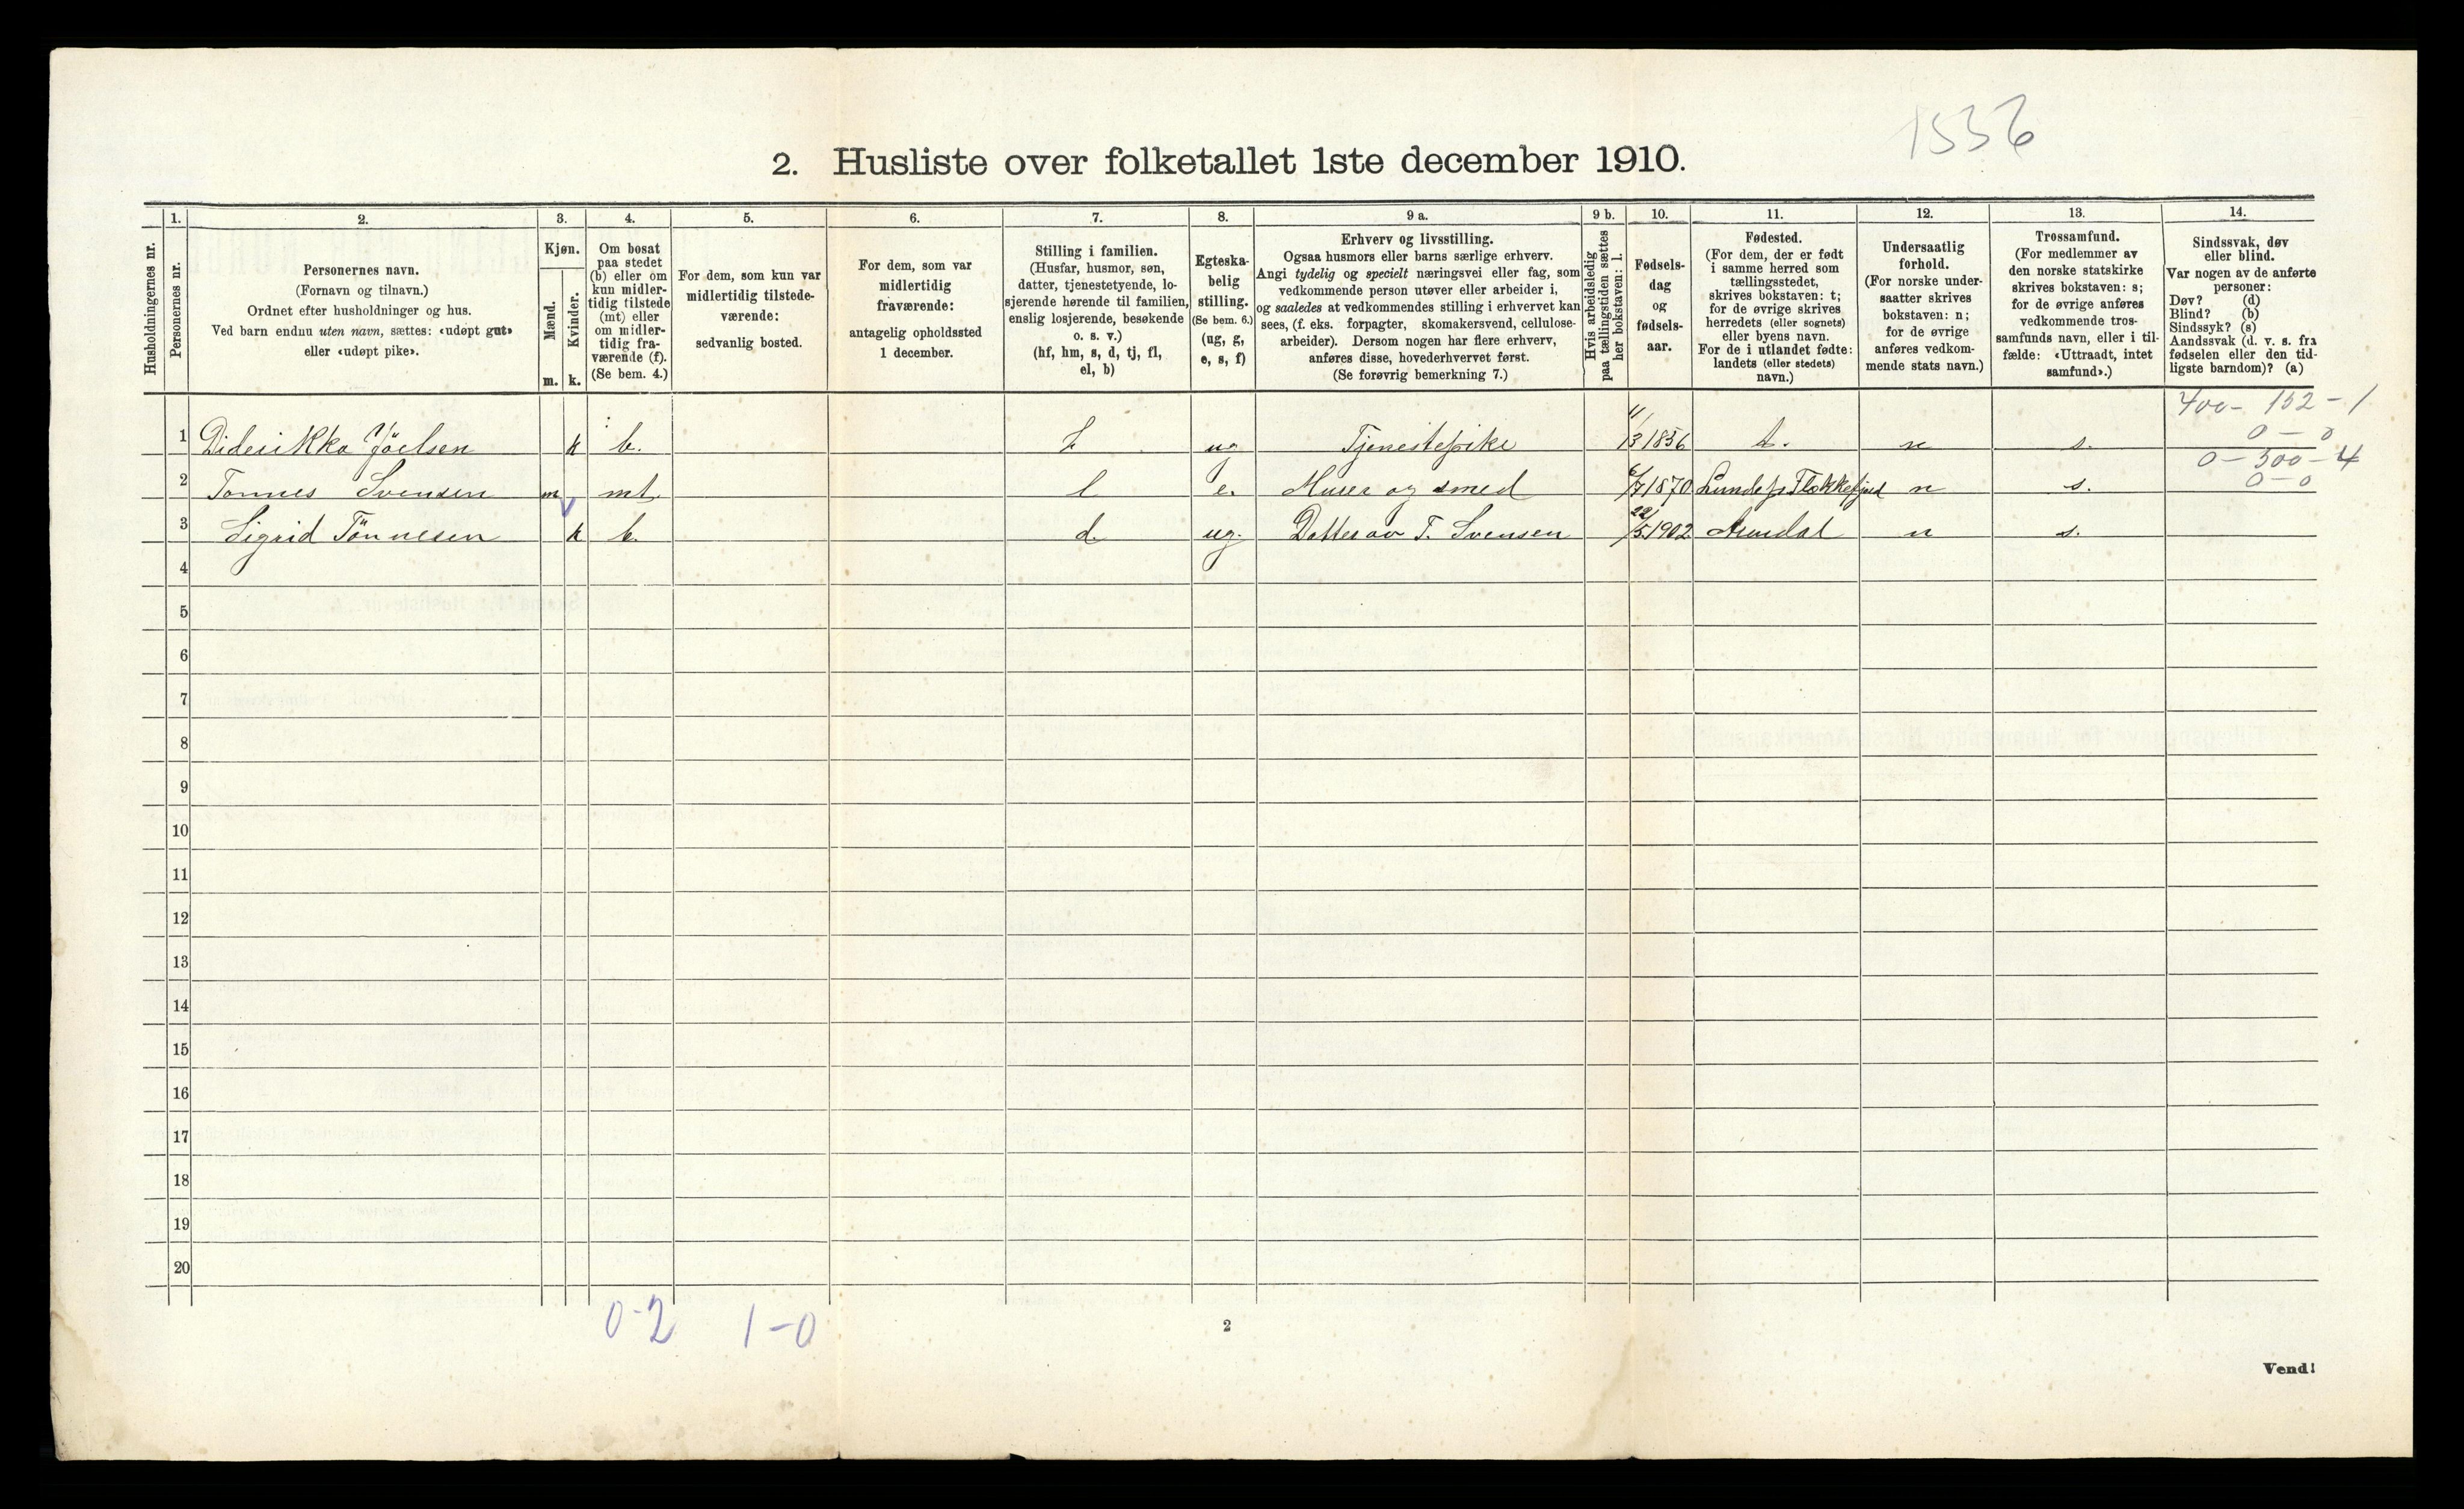 1536
2. Husliste over folketallet 1ste december 1910.
Husholdningernes nr.
1.
Personernes nr.
2.
Personernes navn.
(Fornavn og tilnavn.)
Ordnet efter husholdninger og hus.
Ved barn endnu uten navn, sættes: «udøpt gut»
eller «udøpt pike».
3.
Kjøn.
Mænd.
Kvinder.
m. k.
4.
Om bosat
paa stedet
(b) eller om
kun midler-
tidig tilstede
(mt) eller
om midler-
tidig fra-
værende (f).
(Se bem. 4.)
5.
For dem, som kun var
midlertidig tilstede-
værende:
sedvanlig bosted.
6.
For dem, som var
midlertidig
fraværende:
antagelig opholdssted
1 december.
7.
Stilling i familien.
(Husfar, husmor, søn,
datter, tjenestetyende, lo-
sjerende hørende til familien,
enslig losjerende, besøkende
o. s. v.)
(hf, hm, s, d, tj, fl,
el, b)
8.
Egteska-
belig
stilling.
(Se bem. 6.)
(ug, g,
e, s, f)
9 a.
Erhverv og livsstilling.
Ogsaa husmors eller barns særlige erhverv.
Angi tydelig og specielt næringsvei eller fag, som
vedkommende person utøver eller arbeider i,
og saaledes at vedkommendes stilling i erhvervet kan
sees, (f. eks. forpagter, skomakersvend, cellulose-
arbeider). Dersom nogen har flere erhverv,
anføres disse, hovederhvervet først.
(Se forøvrig bemerkning 7.)
9 b.
Hvis arbeidsledig
paa tællingstiden sættes
her bokstaven: l.
10.
Fødsels-
dag
og
fødsels-
aar.
11.
Fødested.
(For dem, der er født
i samme herred som
tællingsstedet,
skrives bokstaven: t;
for de øvrige skrives
herredets (eller sognets)
eller byens navn.
For de i utlandet fødte:
landets (eller stedets)
navn.)
12.
Undersaatlig
forhold.
(For norske under-
saatter skrives
bokstaven: n;
for de øvrige
anføres vedkom-
mende stats navn.)
13.
Trossamfund.
(For medlemmer av
den norske statskirke
skrives bokstaven: s;
for de øvrige anføres
vedkommende tros-
samfunds navn, eller i til-
fælde: «Uttraadt, intet
samfund».)
14.
Sindssvak, døv
eller blind.
Var nogen av de anførte
personer:
Døv? (d)
Blind? (b)
Sindssyk? (s)
Aandssvak (d. v. s. fra
fødselen eller den tid-
ligste barndom)? (a)
400 - 152 - 1
0 - 0
1 Diderikka Joelsen k b. ug Tjenestepike 11/13 1856 t. n s.
0 - 300 - 4
0 - 0
2 Tønnes Svensen m mt. l e. Murer og smed 6/7 1870 n s.
3 Sigrid Tönnesen k b. d. ug. Datter av T. Svensen 22/5 1902 Arendal n s.
4
5
6
7
8
9
10
11
12
13
14
15
16
17
18
19
20
0-2 1-0
2
Vend!